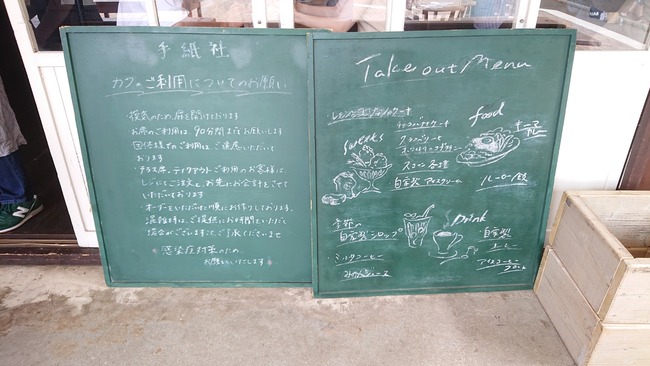 手紙社
カフェご利用についてのお願い
・換気のため、扉を開けております
・お席のご利用は、90分間までお願いします
・団体様でのご利用は、ご遠慮いただいて
おります
・テラス席、テイクアウトご利用のお客様は、
レジにてご注文と、お先にお会計とさせて
いただいております
・オーダーをいただいた順にお作りしております。
混雑時は、ご提供にお時間をいただく
場合がございます。ご了承くださいませ
※感染症対策のため、
お願いいたします
Take out Menu
Sweets
スコーン各種
自家製アイスクリーム
food
キーマカレー
ルーロー飯
季節の
自家製シロップ
ミルクコーヒー
みかんジュース
Drink
自家製
コーヒー
アイスコーヒー